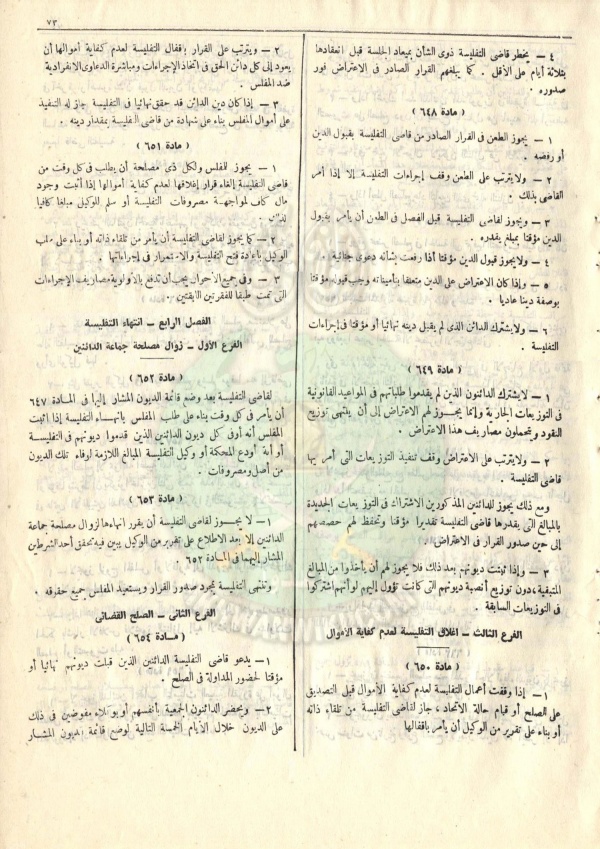 ٧٣
٤ — يخطر قاضى التفليسة ذوى الشأن بميعاد الجلسة قبل انعقادها
بثلاثة أيام على الأقل . كما يبلغهم القرار الصادر فى الاعتراض فور
صدوره .
( مادة ٦٤٨ )
١ — يجوز الطعن فى القرار الصادر من قاضى التفليسة بقبول الدين
أو رفضه .
٢ — ولا يترتب على الطعن وقف إجراءات التفليسة إلا إذا أمر
القاضى بذلك .
٣ — ويجوز لقاضى التفليسة قبل الفصل فى الطعن أن يأمر بقبول
الدين مؤقتا بمبلغ يقدره .
٤ — ولا يجوز قبول الدين مؤقتا اذا رفعت بشأنه دعوى جنائية .
٥ — وإذا كان الاعتراض على الدين متعلقا بتأميناته وجب قبوله مؤقتا
بوصفة دينا عاديا .
٦ — ولا يشترك الدائن الذى لم يقبل دينه نهائيا أو مؤقتا فى إجراءات
التفليسة .
( مادة ٦٤٩ )
١ — لا يشترك الدائنون الذين لم يقدموا طلباتهم فى المواعيد القانونية
فى التوزيعات الجارية وإنما يجوز لهم الاعتراض إلى أن ينتهى توزيع
النقود ويتحملون مصاريف هذا الاعتراض .
٢ — ولا يترتب على الاعتراض وقف تنفيذ التوزيعات التى أمر بها
قاضى التفليسة .
ومع ذلك يجوز للدائنين المذكورين الاشتراك فى التوزيعات الجديدة
بالمبالغ التى يقدرها قاضى التفليسة تقديرا مؤقتا وتحفظ لهم حصصهم
إلى حين صدور القرار فى الاعتراض .
٣ — وإذا ثبتت ديونهم بعد ذلك فلا يجوز لهم أن يأخذوا من المبالغ
المتبقية دون توزيع أنصبة ديونهم التى كانت تؤول إليهم لو أنهم اشتركوا
فى التوزيعات السابقة .
الفرع الثالث — اغلاق التفليسة لعدم كفاية الأموال
( مادة ٦٥٠ )
١ — إذا وقفت أعمال التفليسة لعدم كفاية الأموال قبل التصديق
على الصلح أو قيام حالة الاتحاد ، جاز لقاضى التفليسة من تلقاء ذاته
أو بناء على تقرير من الوكيل أن يأمر باقفالها
٢ — ويترتب على القرار بإقفال التفليسة لعدم كفاية أموالها أن
يعود إلى كل دائن الحق فى اتخاذ الإجراءات ومباشرة الدعاوى الانفرادية
ضد المفلس .
٣ — إذا كان دين الدائن قد حقق نهائيا فى التفليسة جاز له التنفيذ
على أموال المفلس بناء على شهادة من قاضى التفليسة بمقدار دينه .
( مادة ٦٥١ )
١ — يجوز للمفلس ولكل ذى مصلحة أن يطلب فى كل وقت من
قاضى التفليسة إلغاء قرار إغلاقها لعدم كفاية أموالها إذا أثبت وجود
مال كاف لمواجهة مصروفات التفليسة أو سلم للوكيل مبلغا كافيا
لذلك .
٢ — كما يجوز لقاضى التفليسة أن يأمر من تلقاء ذاته أو بناء على طلب
الوكيل بإعادة فتح التفليسة والاستمرار فى إجراءاتها .
٣ — وفى جميع الأحوال يجب أن تدفع بالأولوية مصاريف الإجراءات
التى تمت طبقا للفقرتين السابقتين .
الفصل الرابع — انتهاء التفليسة
الفرع الأول — زوال مصلحة جماعة الدائنين
( مادة ٦٥٢ )
لقاضى التفليسة بعد وضع قائمة الديون المشار إليها فى المادة ٦٤٧
أن يأمر فى كل وقت بناء على طلب المفلس بانهاء التفليسة إذا اثبت
المفلس أنه أوفى كل ديون الدائنين الذين قدموا ديونهم فى التفليسة
أو أنه أودع المحكمة أو وكيل التفليسة المبالغ اللازمة لوفاء تلك الديون
من أصل ومصروفات .
( مادة ٦٥٣ )
١ — لا يجوز لقاضى التفليسة أن يقرر انهاءها لزوال مصلحة جماعة
الدائنين إلا بعد الاطلاع على تقرير من الوكيل يبين فيه تحقق أحد الشرطين
المشار إليهما فى المادة ٦٥٢
وتنتهى التفليسة بمجرد صدور القرار ويستعيد المفلس جميع حقوقه .
الفرع الثانى — الصلح القضائى
( مادة ٦٥٤ )
١ — يدعو قاضى التفليسة الدائنين الذين قبلت ديونهم نهائيا أو
مؤقتا لحضور المداولة فى الصلح .
٢ — ويحضر الدائنون الجمعية بأنفسهم أو بوكلاء مفوضين فى ذلك
على الديون خلال الأيام الخمسة التالية لوضع قائمة الديون المشار